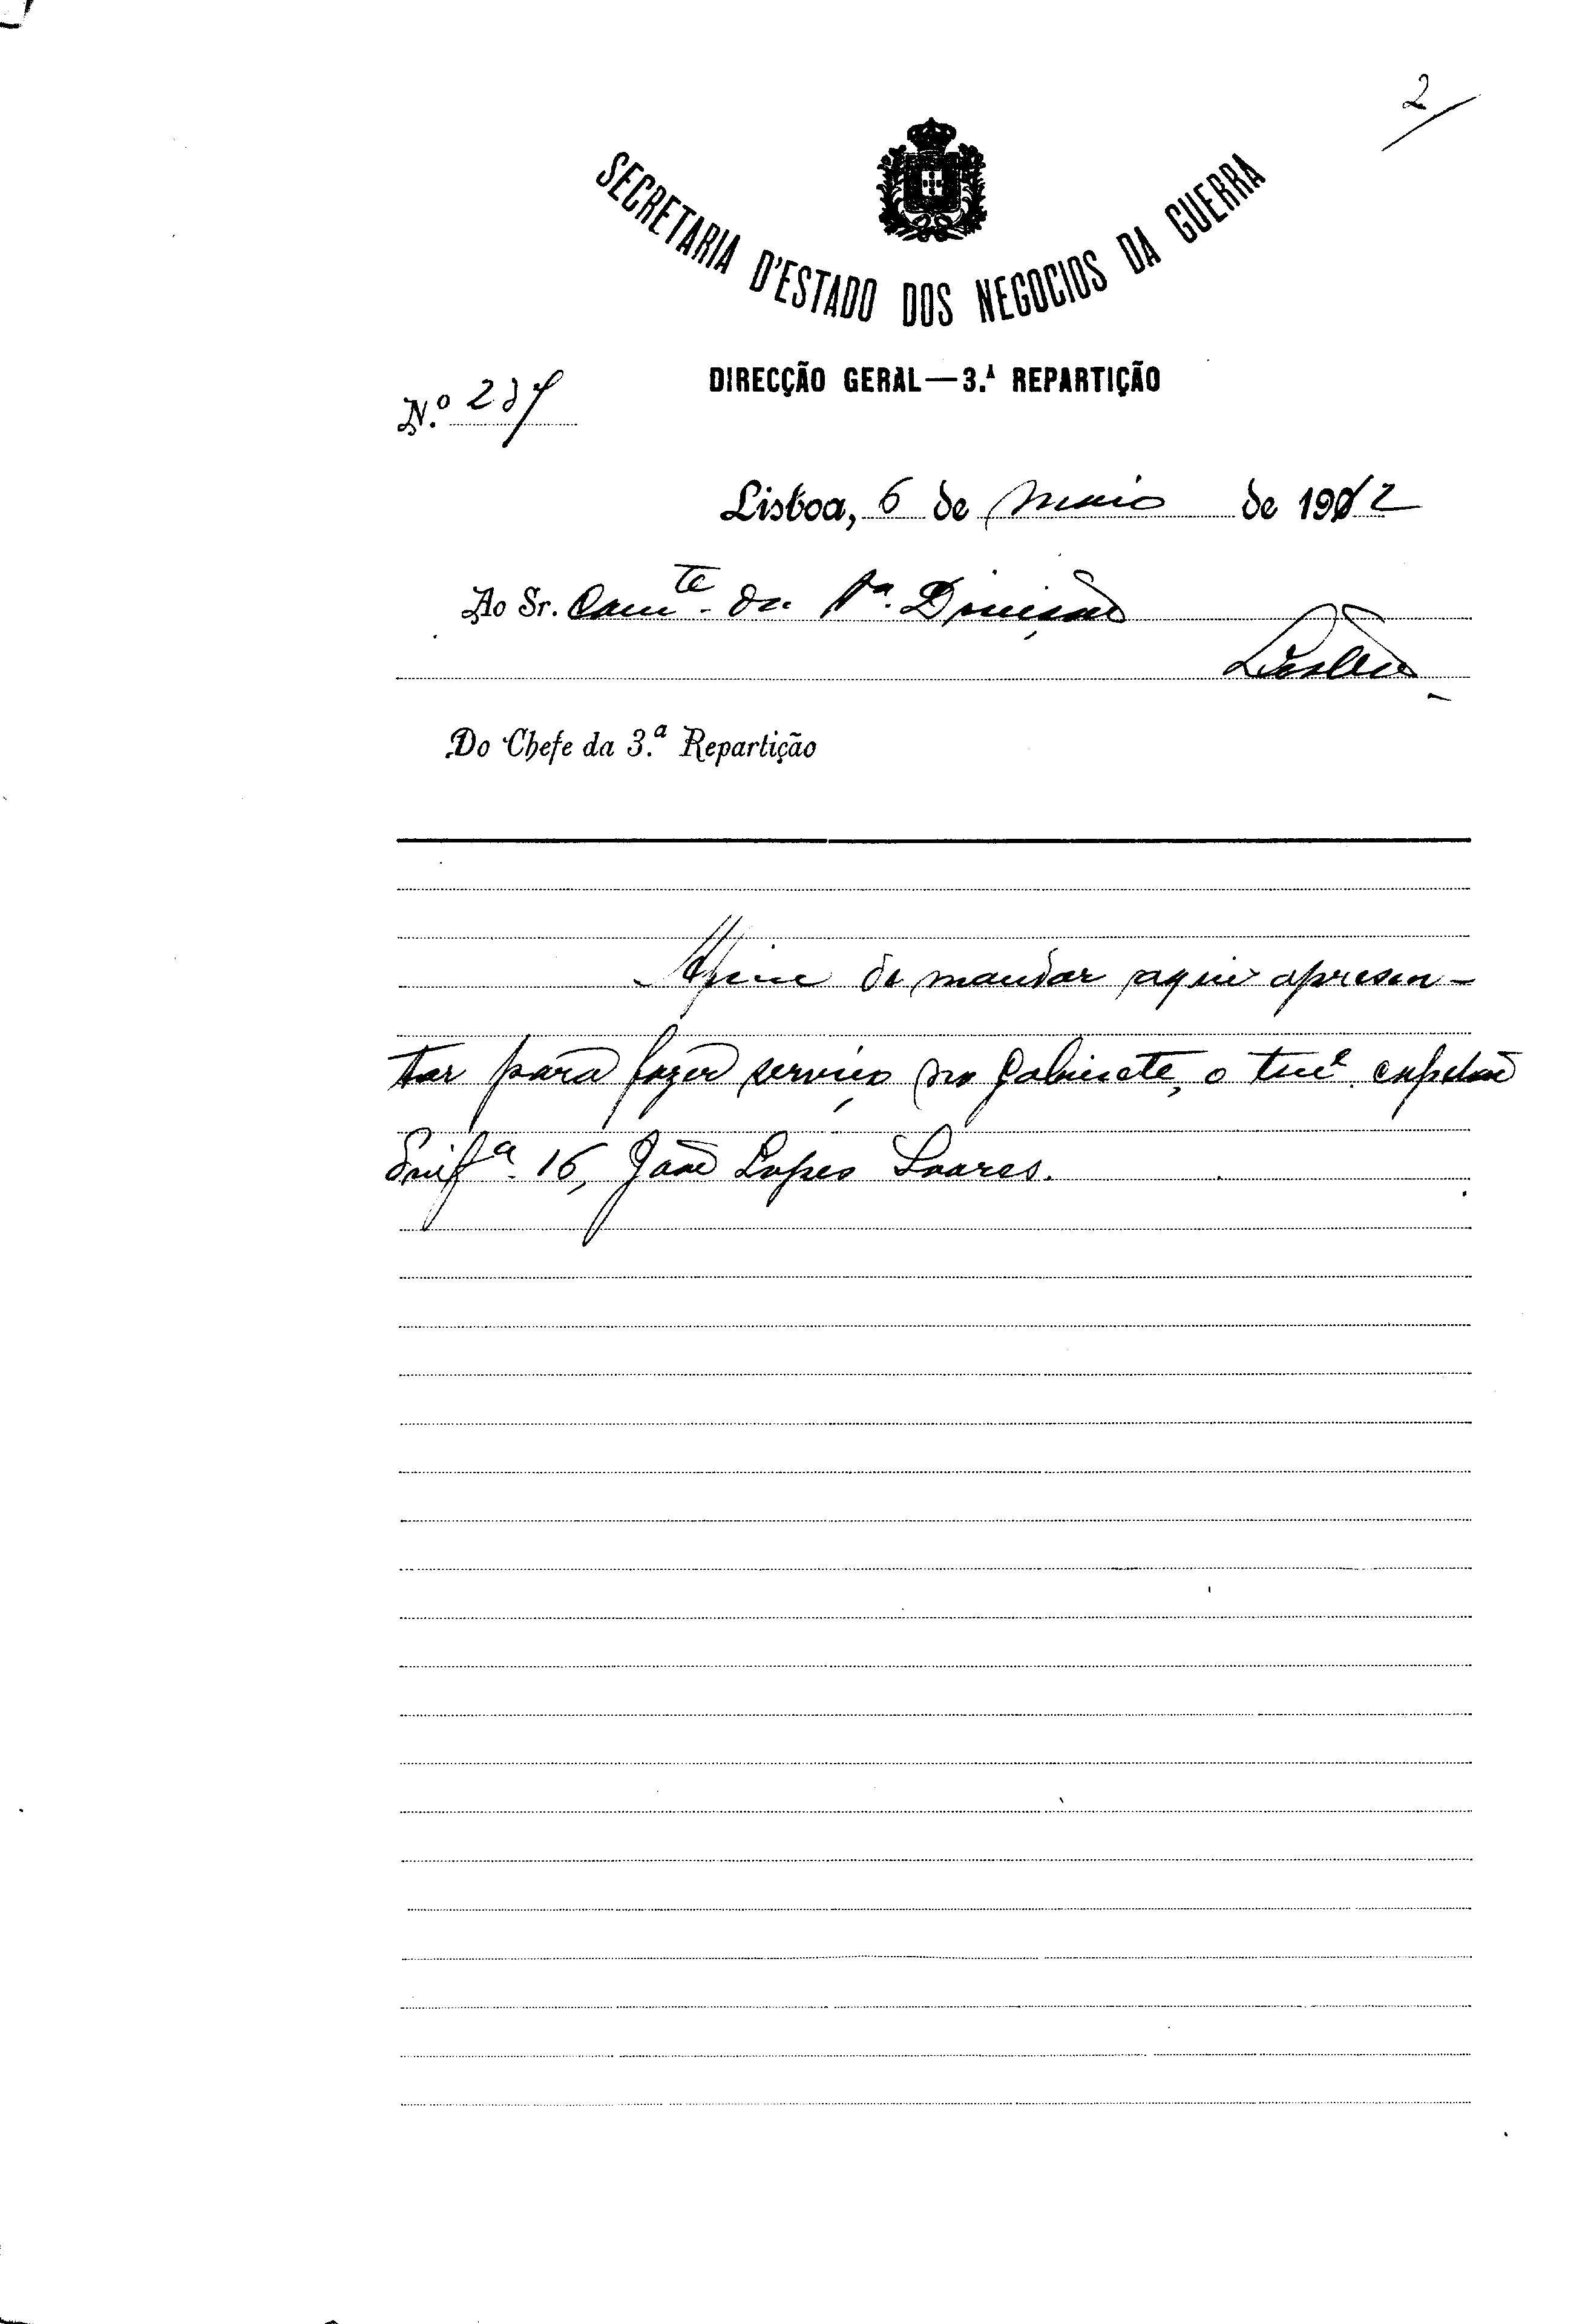 2
SECRETARIA D'ESTADO DOS NEGOCIOS DA GUERRA
DIRECÇÃO GERAL—3.ª REPARTIÇÃO
N.º 237
Lisboa, 6 de maio de 1912
Ao Sr. Comte. da 1ª. Divisão
Lisboa
Do Chefe da 3.ª Repartição
Afim de mandar aqui apresen-
tar para fazer serviço no gabinete, o tene. capelão
Infª. 16, João Lopes Soares.